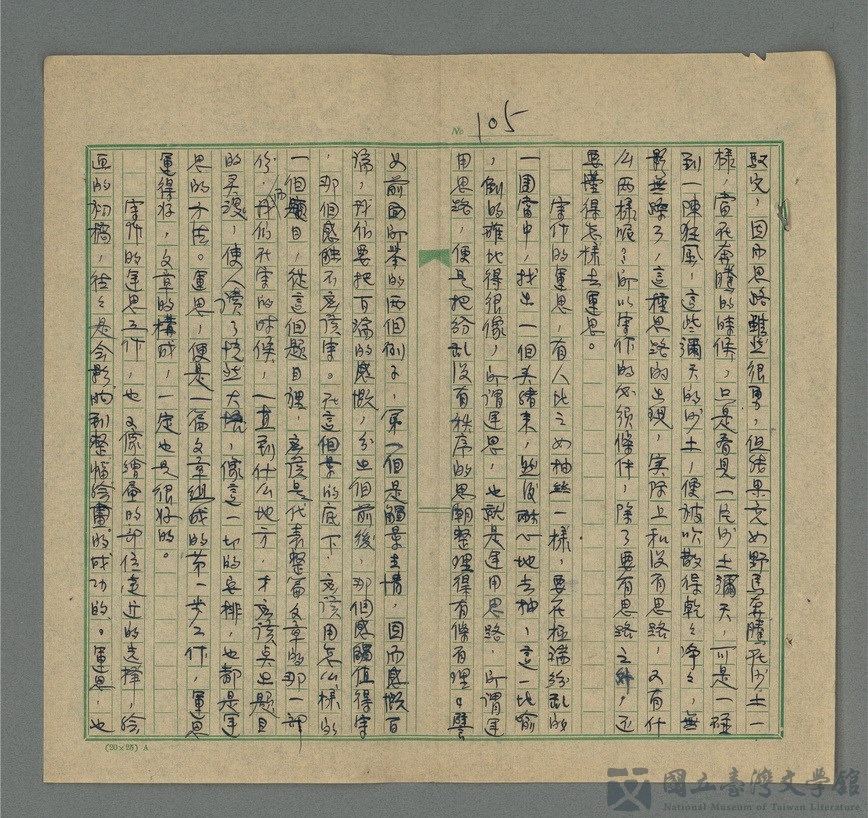 No 105
馭完，因而思路雖然很勇，但結果竟如野馬奔騰在沙土一
樣，當在奔騰的時候，只是看見一片沙土瀰天，可是一碰
到一陣狂風，這些瀰天的沙土，便被吹散得乾々净々，無
影無蹤了，這種思路的出現，實際上和沒有思路，又有什
么両樣呢？所以寫作的必須條件，除了要有思路之外，还
要懂得怎樣去運思。
寫作的運思，有人比之如抽絲一樣，要在極端紛乱的
一團當中，找出一個头緒来，然後耐心地去抽，這一比喻
，倒的確比得很像，所謂運思，也就是運用思路，所謂運
用思路，便是把紛乱沒有秩序的思潮整理得有條有理。譬
如前面所举的両個例子，第一個是觸景生情，因而感慨百
端，我们要把百端的感慨，分出個前後，那個感觸值得寫
，那個感触不应該寫。在這個景的底下，应該用怎么樣的
一個題目，從這個題目裡，应該是代表整篇文章的那一部
份，而我们在寫的時候，一直到什么地方，才应該点出題目
的灵魂，使人讀了恍然大悟，像這一切的安排，也都是運
思的方法。運思，便是一篇文章組成的第一步工作，運思
運得好，文章的構成，一定也是很好的。
寫作的運思工作，也又像繪畫的部位遠近的选擇，繪
画的初稿，往々是会影响到整幅繪畫的成功的。運思，也
(20×25) A
國立臺灣文學館
National Museum of Taiwan Literature